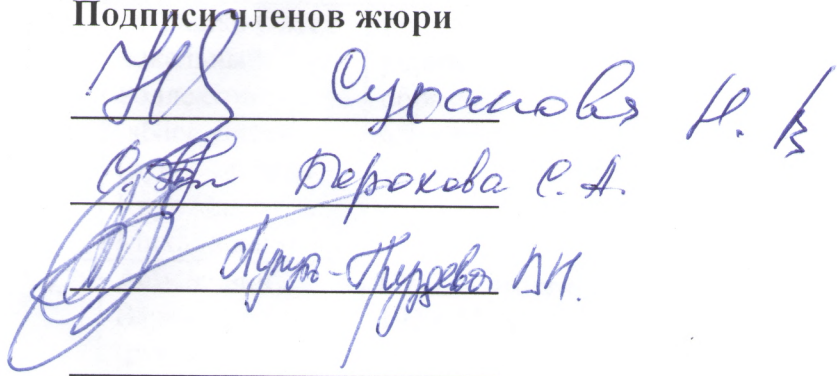 Подписи членов жюри
Суранова Н. В
Борокова С. А.
-Груздева В.Н.